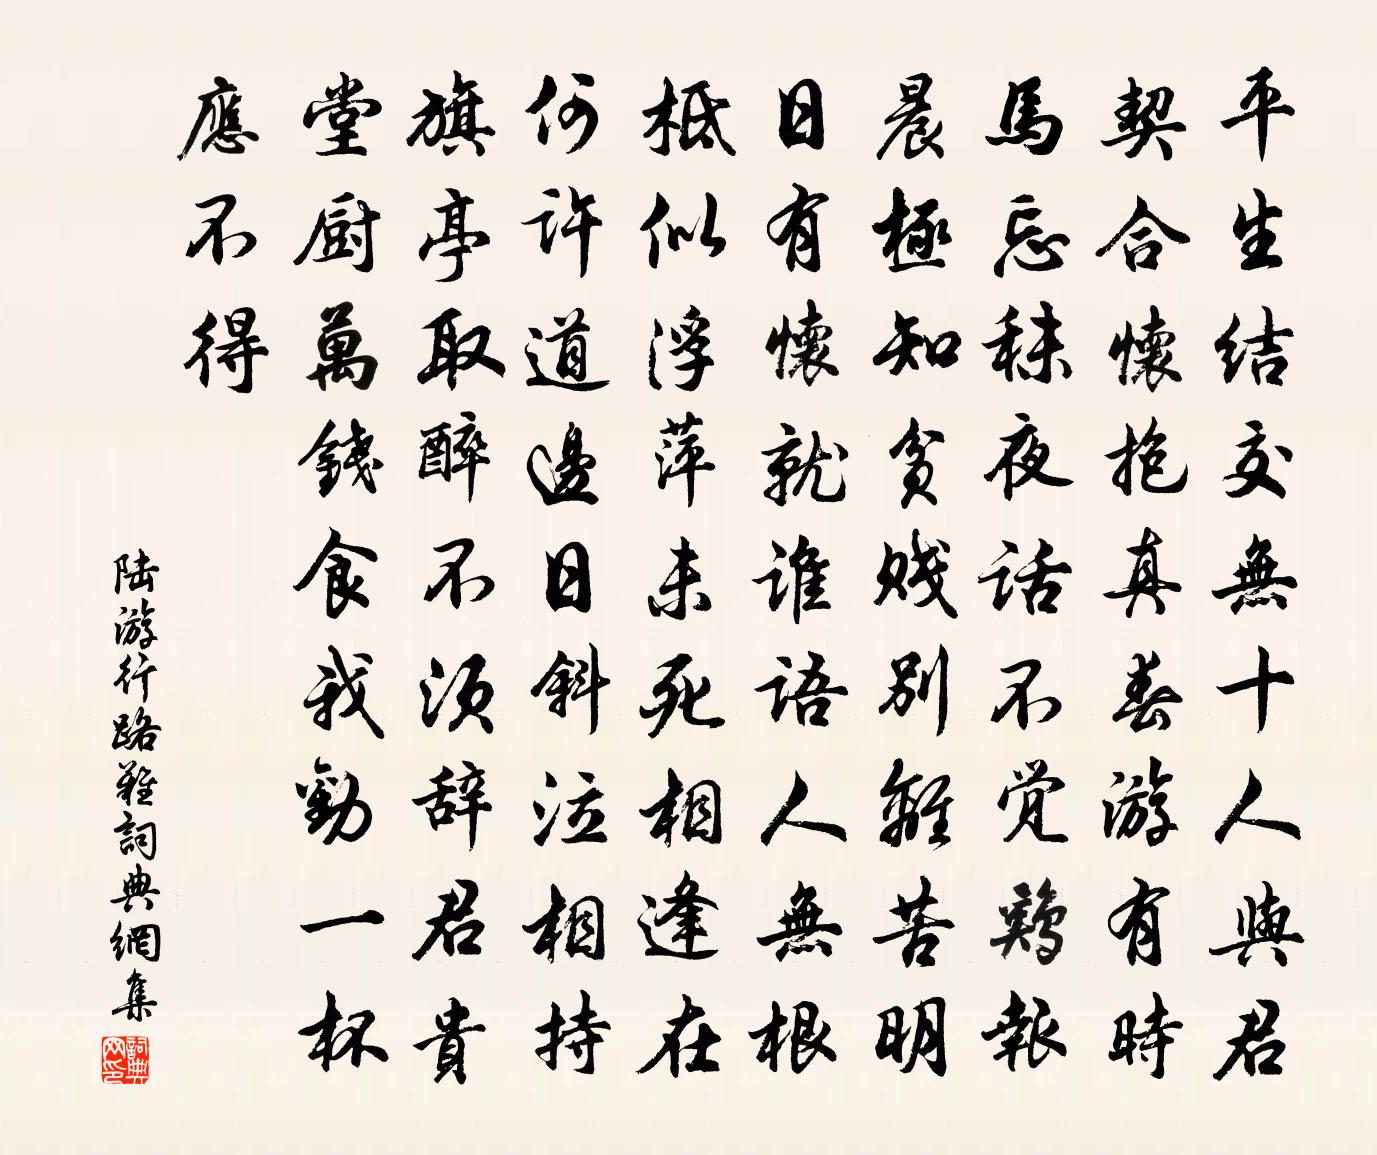 平生结交無十人與君
契合懷抱真春游有時
馬忘秣夜话不觉鷄報
晨極知貧贱别離苦明
日有懷就谁语人無根
柢似浮萍未死相逢在
何许道邊日斜泣相持
旗亭取醉不须辞君貴
堂厨萬錢食我勸一杯
應不得
陆游行路難詞典網集
詞典
网印